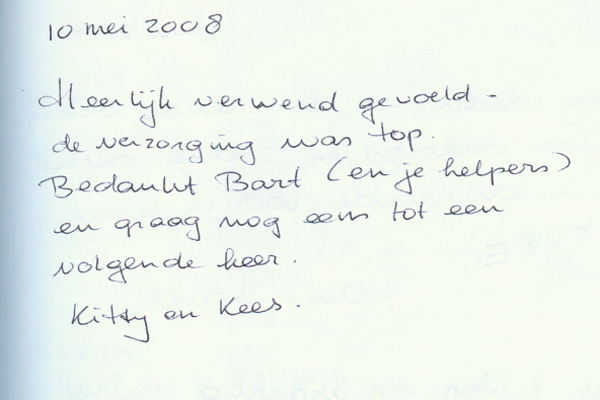 10 mei 2008
Heerlijk verwend gevoeld -
de verzorging was top.
Bedankt Bart (en je helpers)
en graag nog eens tot een
volgende keer.
Kitty en Kees.